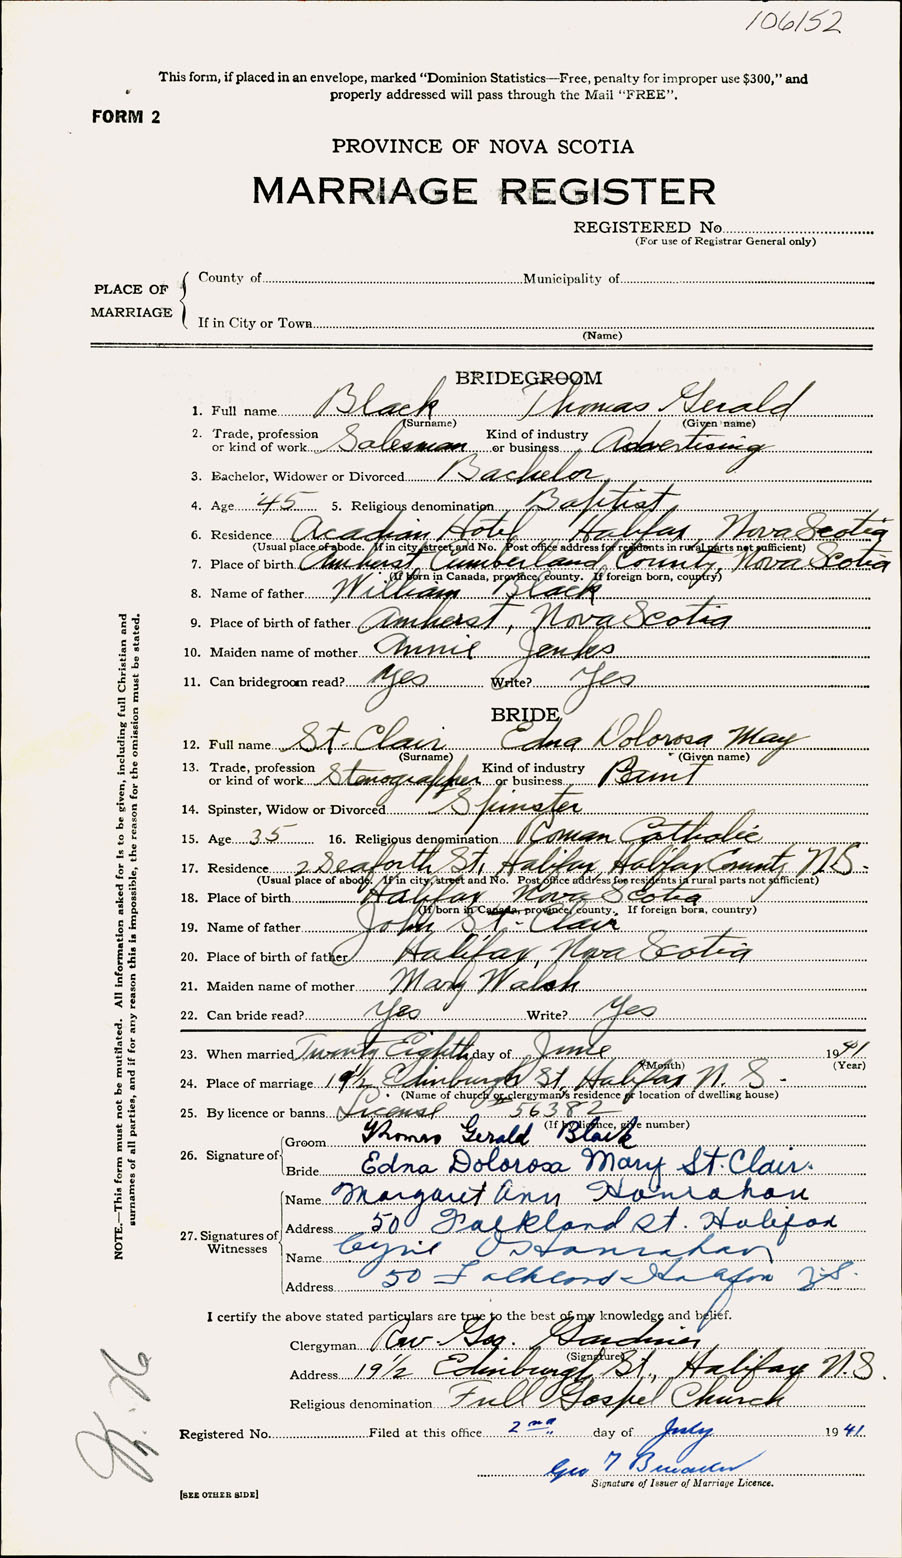 106152
This form, if placed in an envelope, marked "Dominion Statistics—Free, penalty for improper use $300," and
properly addressed will pass through the Mail "FREE".
FORM 2
PROVINCE OF NOVA SCOTIA
MARRIAGE REGISTER
REGISTERED No.
(For use of Registrar General only)
PLACE OF MARRIAGE
County of Municipality of
If in City or Town
(Name)
BRIDEGROOM
1. Full name Black Thomas Gerald
(Surname) (Given name)
2. Trade, profession or kind of work Salesman Kind of industry or business Advertising
3. Bachelor, Widower or Divorced Bachelor
4. Age 45 5. Religious denomination Baptist
6. Residence Acadian Hotel Halifax Nova Scotia
(Usual place of abode. If in city, street and No. Post office address for residents in rural parts not sufficient)
7. Place of birth Amherst Cumberland County, Nova Scotia
(If born in Canada, province, county. If foreign born, country)
8. Name of father William Black
9. Place of birth of father Amherst, Nova Scotia
10. Maiden name of mother Annie Jenks
11. Can bridegroom read? Yes Write? Yes
BRIDE
12. Full name St. Clair Edna Dolorosa May
(Surname) (Given name)
13. Trade, profession or kind of work Stenographer Kind of industry or business
14. Spinster, Widow or Divorced Spinster
15. Age 35 16. Religious denomination Roman Catholic
17. Residence 2 Seaforth St, Halifax, Halifax County N.S.
(Usual place of abode. If in city, street and No. Post office address for residents in rural parts not sufficient)
18. Place of birth Halifax, Nova Scotia
(If born in Canada, province, county. If foreign born, country)
19. Name of father John St. Clair
20. Place of birth of father Halifax, Nova Scotia
21. Maiden name of mother Mary Walsh
22. Can bride read? Yes Write? Yes
23. When married Twenty Eighth day of June 1941
(Month) (Year)
24. Place of marriage 19½ Edinburgh St, Halifax N. S.
(Name of church or clergyman's residence or location of dwelling house)
25. By licence or banns License 56382
(If by licence, give number)
26. Signature of Groom Thomas Gerald Black
Bride Edna Dolorosa Mary St. Clair.
27. Signatures of Witnesses Name Margaret Ann Hanrahan
Address 50 Falkland St. Halifax
Name Cyril Hanrahan
Address 50 Falkland Halifax N.S.
I certify the above stated particulars are true to the best of my knowledge and belief.
Clergyman Rev. Geo. Gardiner
(Signature)
Address 19½ Edinburgh St., Halifax N.S.
Religious denomination Full Gospel Church
Registered No. Filed at this office 2nd day of July 1941.
Geo T
Signature of Issuer of Marriage Licence.
[SEE OTHER SIDE]
NOTE.—This form must not be mutilated. All information asked for is to be given, including full Christian and
surnames of all parties, and if for any reason this is impossible, the reason for the omission must be stated.